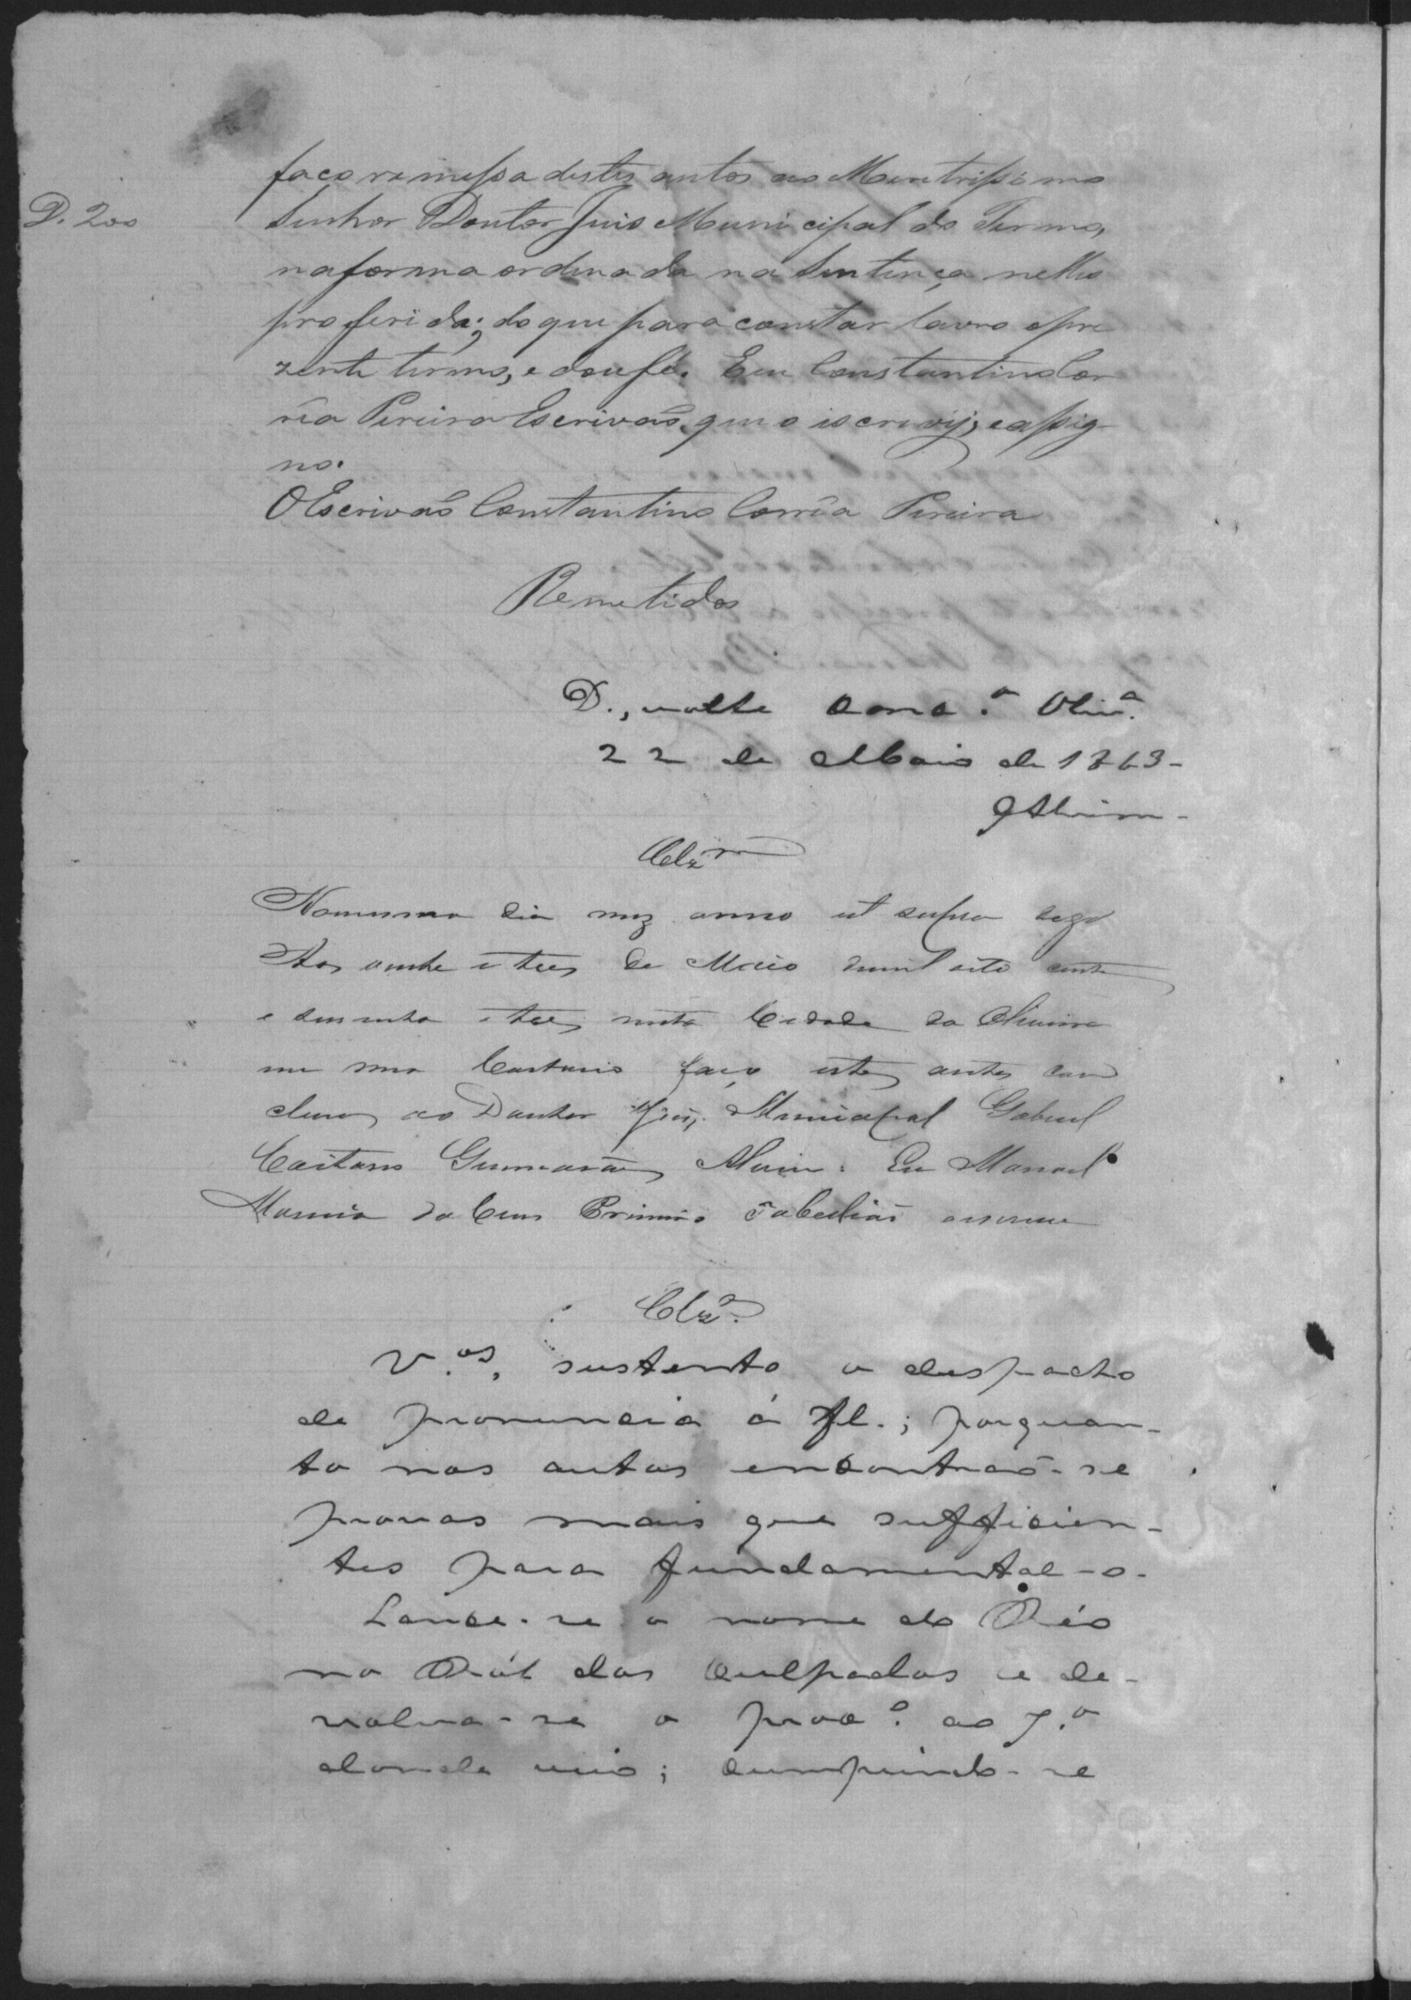 faço remessa destes autos ao Meretissimo
D. 200
Senhor Doutor Juis Municipal do Termo,
na forma ordenada na Sentença nelles
proferida; do que para constar lavro o pre
zente termo, e dou fé. Eu Constantino Cor
rêa Pereira Escrivaõ, que o iscrevy, e assig
no.
O Escrivaõ Constantino Corrêa Pereira
Remetidos
D., volte conc.º Oliv.ª
22 de Maio de 1863-
GAlvim-
Clz.m
No mesmo dia mez anno ut supra digo
Aos vinte e tres de Maio de mil oito cento
e sessenta e tres nesta Cidade da Oliveira
em meu Cartorio faço estes autos con
clusos ao Doutor Juiz Municipal Gabriel
Caitano Guimarães Alvim. Eu Manoel
da Cruz Primeiro Tabeliaõ escrevi
Clz.º
V.os, sustento o despacho
de pronuncia á fl.; porquan-
to nos autos encontraõ-se
provas mais que sufficien-
tes para fundamental-o.
Lance-se o nome do Réo
no Ról dos Culpados e de-
volva-se o proc.º ao J.º
donde veio; cumprindo-se